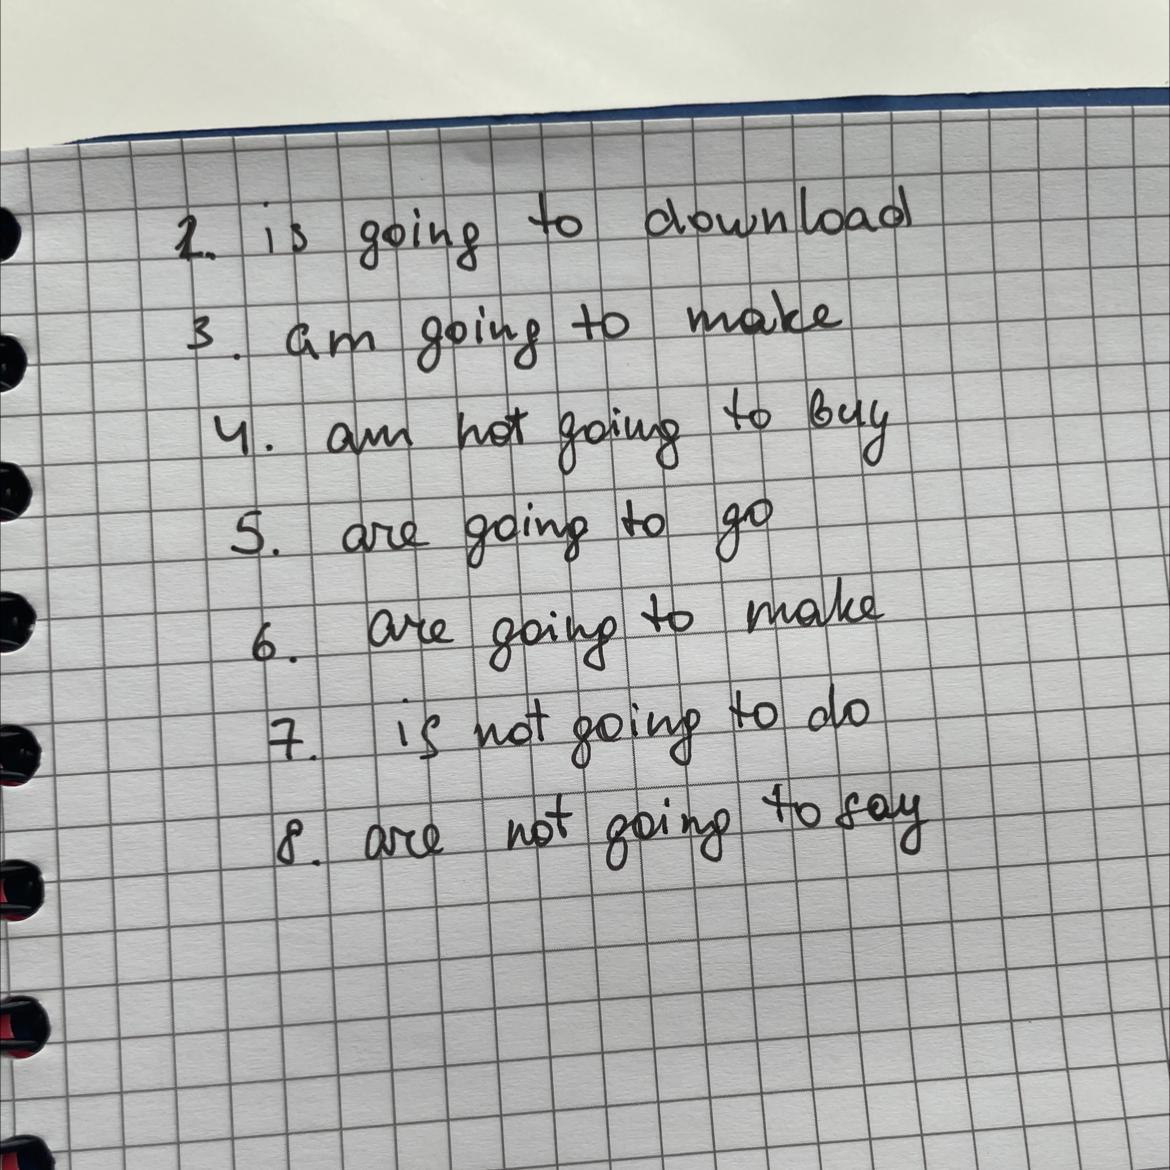 2. is going to download
3. am going to make
4. am not going to buy
5. are going to go
6. are going to make
7. is not going to do
8. are not going to say